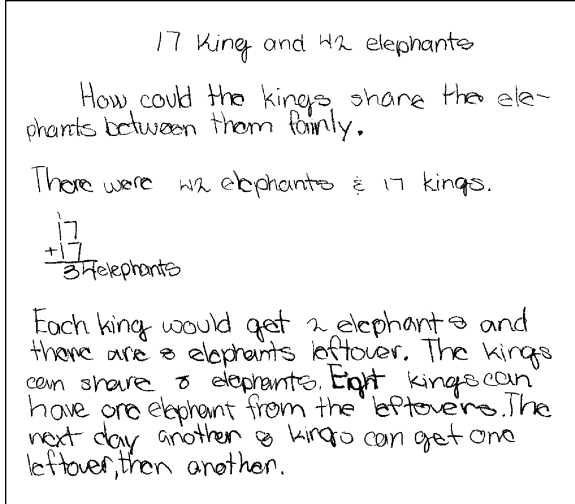 17 King and 42 elephants
How could the kings share the ele-
phants between them fairly.
There were 42 elephants & 17 kings.
1
17
+17
34 elephants
Each king would get 2 elephants and
there are 8 elephants leftover. The kings
can share 8 elephants. Eight kings can
have one elephant from the leftovers. The
next day another 8 kings can get one
leftover, then another.